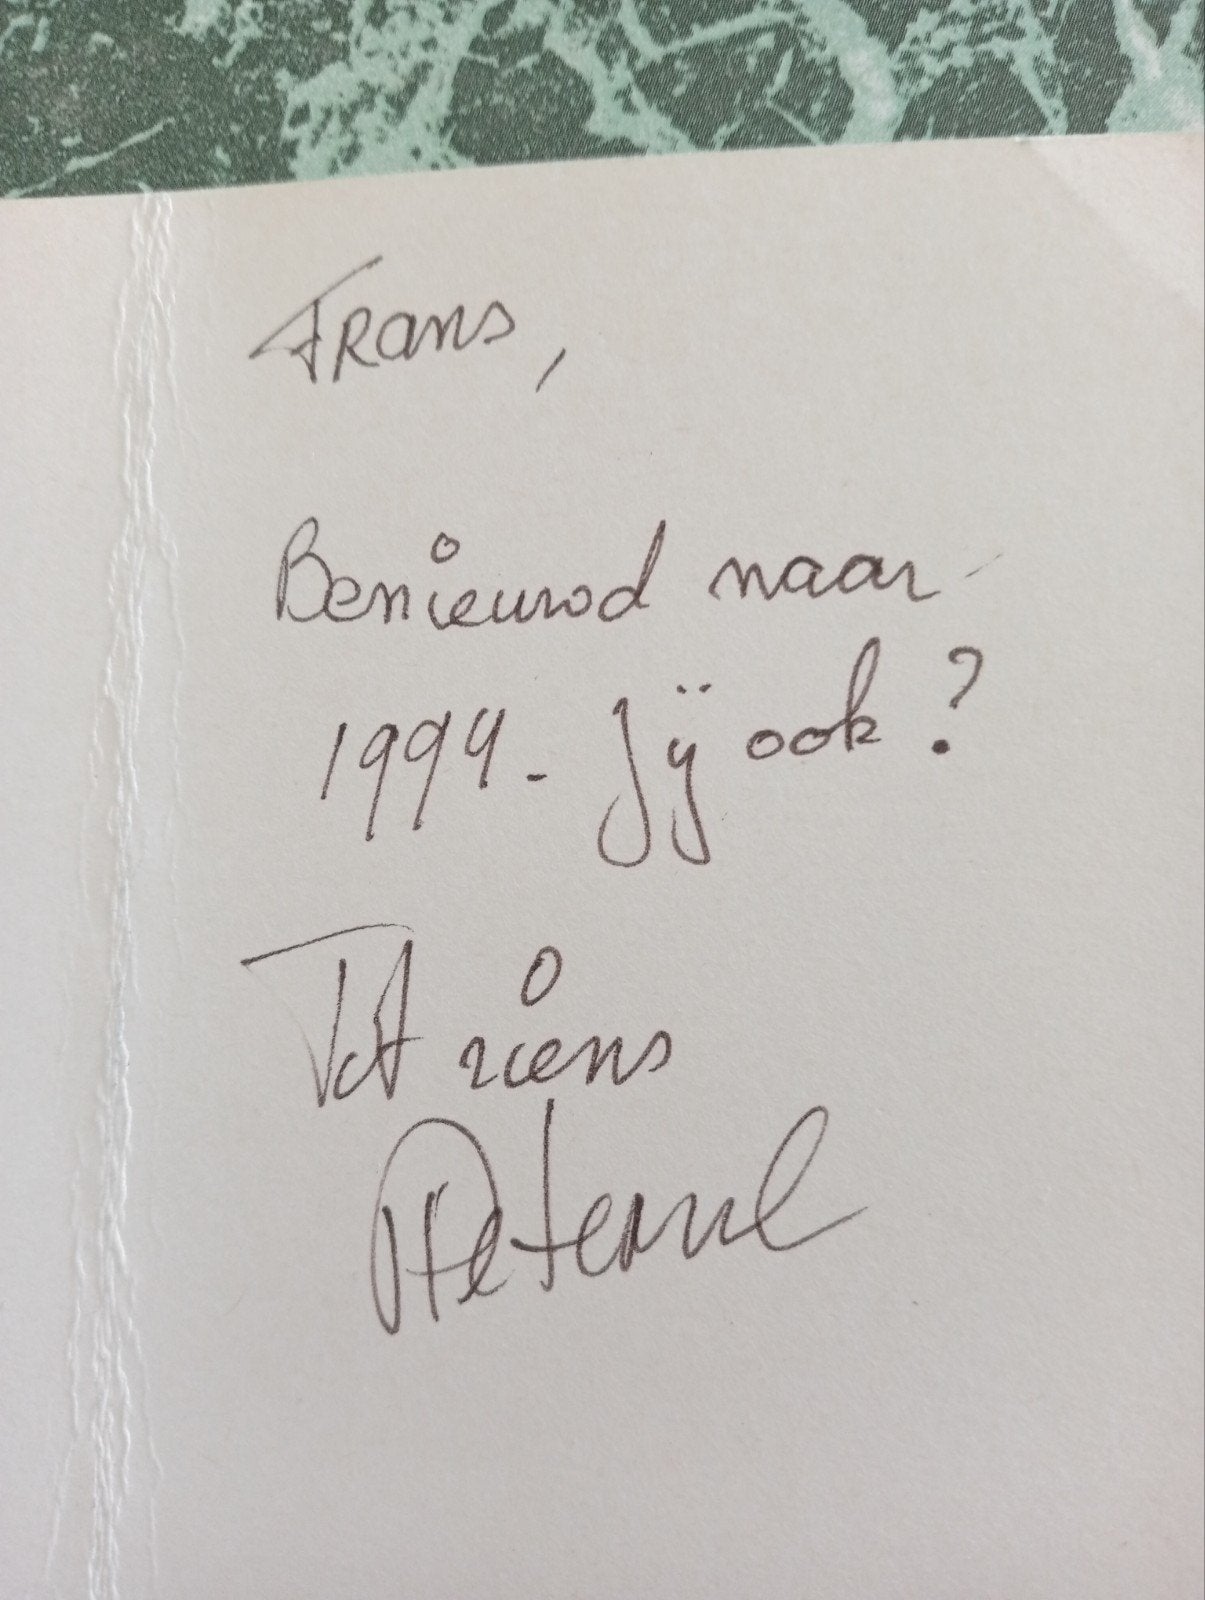 Frans,
Benieuwd naar
1994. Jij ook?
Tot ziens